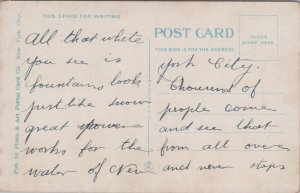 THIS SPACE FOR WRITING
All that white
you see is
fountains look
just like snow
great power
works for the
water of New
POST CARD
THIS SIDE IS FOR THE ADDRESS
PLACE
STAMP HERE
york City.
Thousens of
people come
and see that
from all over
and never stops
Pub. by Photo & Art Postal Card Co., New York City.